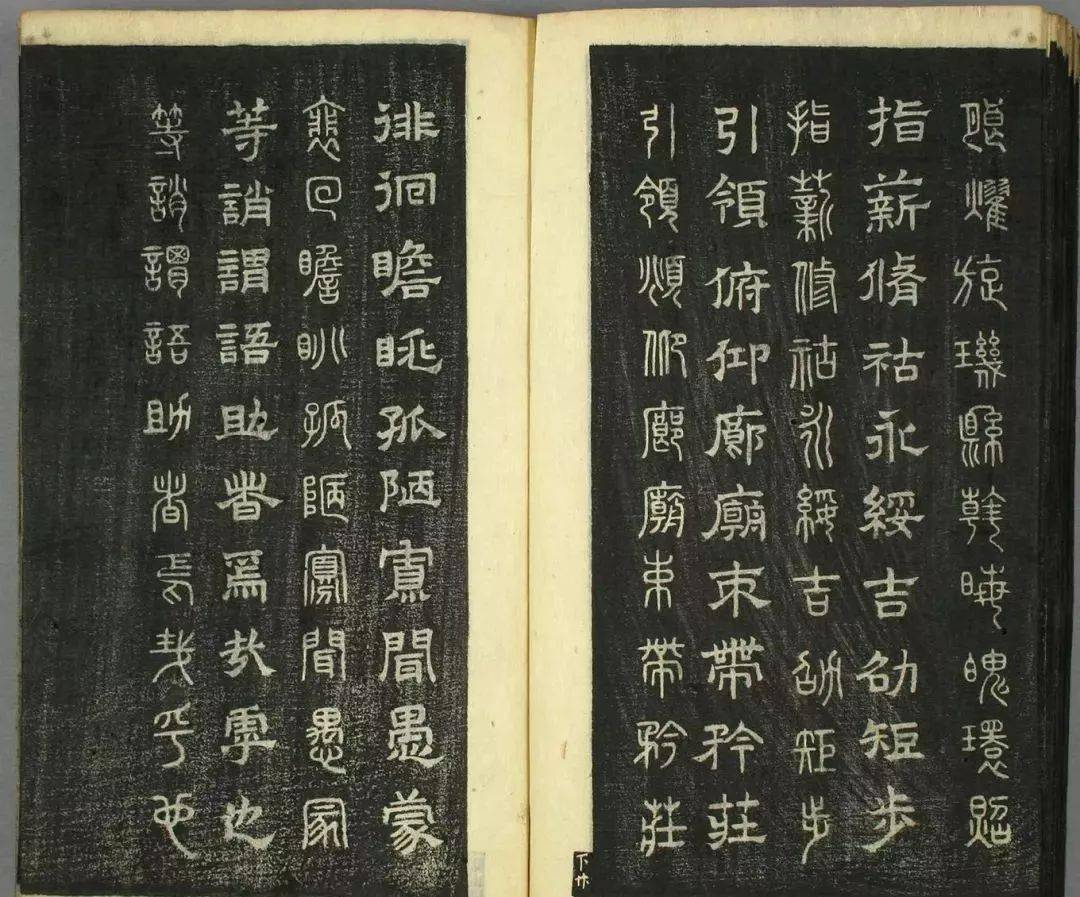 朗燿旋璣縣斡晦魄環照
指薪脩祜永綏吉劭短步
指薪修祜永綏吉劭矩步
引領俯仰廊廟束帶矜莊
引領頫仰廊廟束帶矜莊
徘徊瞻眺孤陋寡聞愚蒙
裵回瞻眺孤陋寡聞愚冡
等誚謂語助者焉哉乎也
等誚謂語助者焉哉乎也